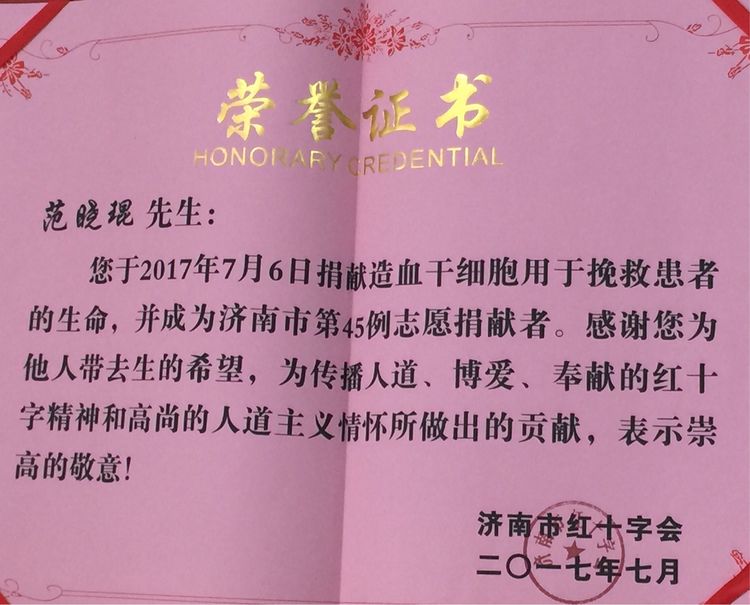 荣誉证书
HONORARY CREDENTIAL
范晓琨 先生：
您于2017年7月6日捐献造血干细胞用于挽救患者
的生命，并成为济南市第45例志愿捐献者。感谢您为
他人带去生的希望，为传播人道、博爱、奉献的红十
字精神和高尚的人道主义情怀所做出的贡献，表示崇
高的敬意！
济南市红十字会
二〇一七年七月